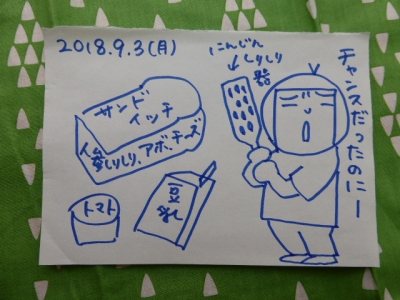 2018.9.3(月)
にんじん
しりしり
器
チャンスだったのにー
サンド
イッチ
しりしり、アボ、チーズ
トマト
豆乳